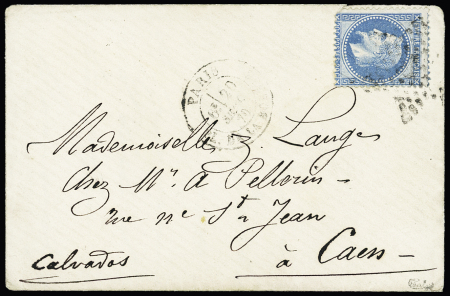 PARIS
Mademoiselle Z. Lange
Chez Mr. A Pellerin
rue
St Jean
à Caen
Calvados